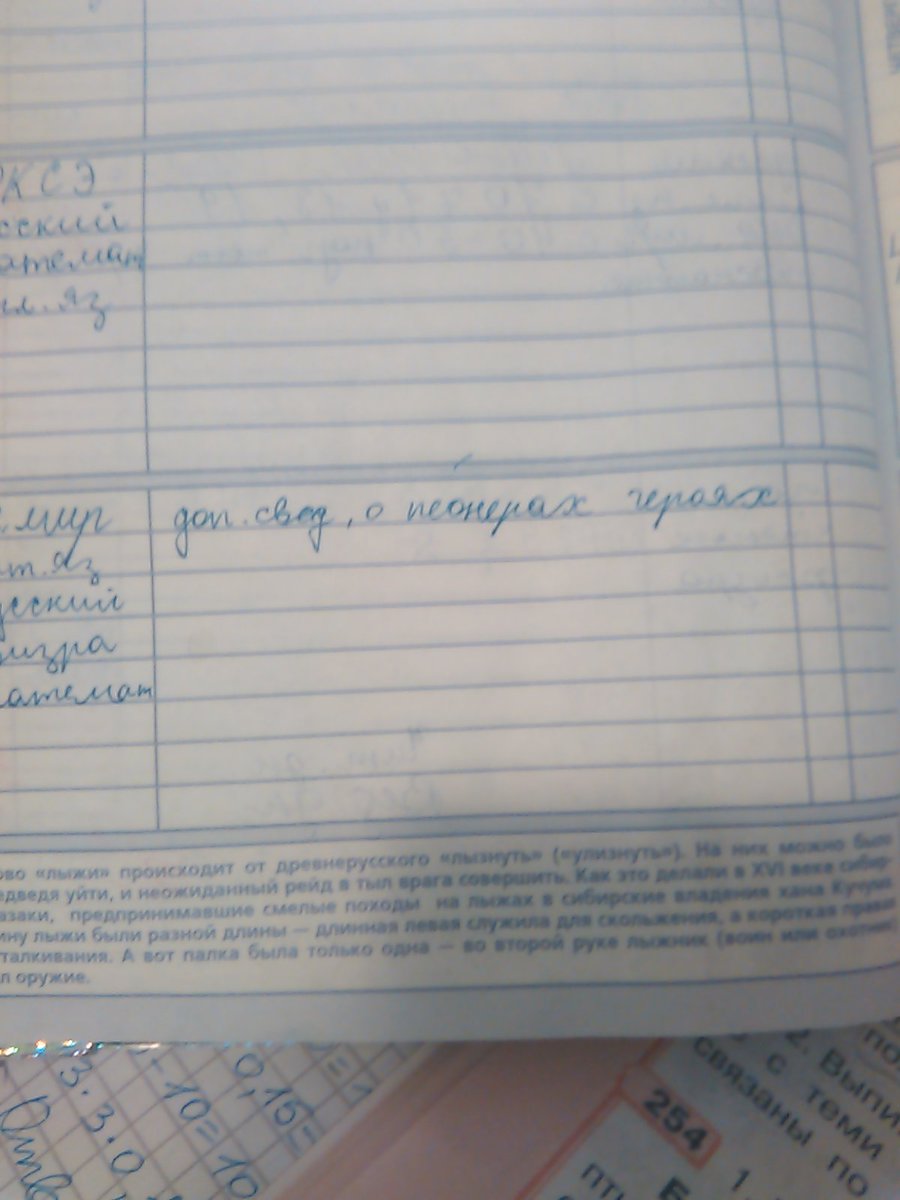 РКСЭ
сский
атемат
гл. яз
.мир доп. свед, о пеонерах героях
т. яз
усский
изра
атемат
ово «лыжи» происходит от древнерусского «лызнуть» («улизнуть»). На них можно было
едведя уйти, и неожиданный рейд в тыл врага совершить. Как это делали в XVI веке сибир-
азаки, предпринимавшие смелые походы на лыжах в сибирские владения хана Кучума
ину лыжи были разной длины — длинная левая служила для скольжения, а короткая правая
талкивания. А вот палка была только одна — во второй руке лыжник (воин или охотник
л оружие.
3.3.0
10=
10
0,15=
254
1
2. Выпи
с теми
связаны
по